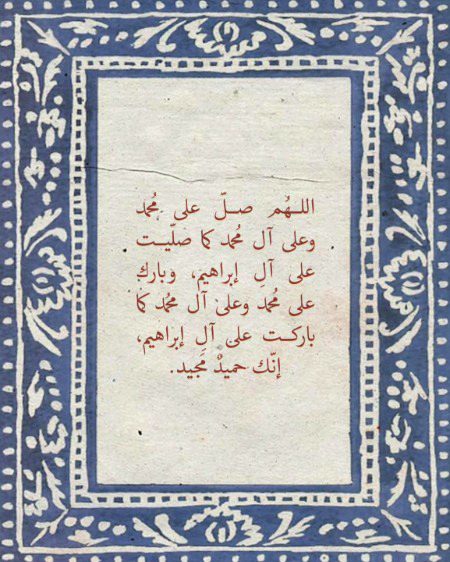 اللـهُم صــلّ على مُحمد
وعلى آل مُحمد كما صلّيــت
على آلِ إبراهيم، وبارك
على مُحمد وعلى آل مُحمد كما
باركــت على آلِ إبراهيم،
إنّك حميدٌ مَجيد.